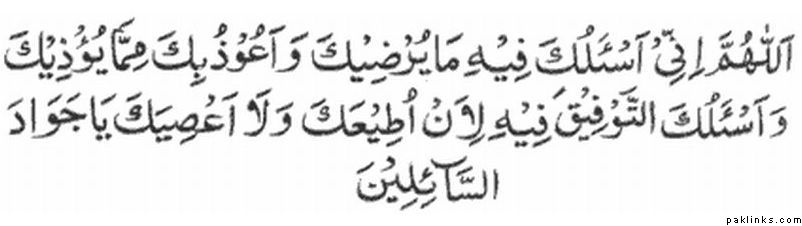 اَللّٰهُمَّ اِنِّيْ اَسْئَلُكَ فِيْهِ مَا يُرْضِيْكَ وَ اَعُوْذُ بِكَ مِمَّا يُؤْذِيْكَ
وَ اَسْئَلُكَ التَّوْفِيْقَ فِيْهِ لِاَنْ اُطِيْعَكَ وَ لَا اَعْصِيَكَ يَا جَوَادَ
السَّآئِلِيْنَ
paklinks.com